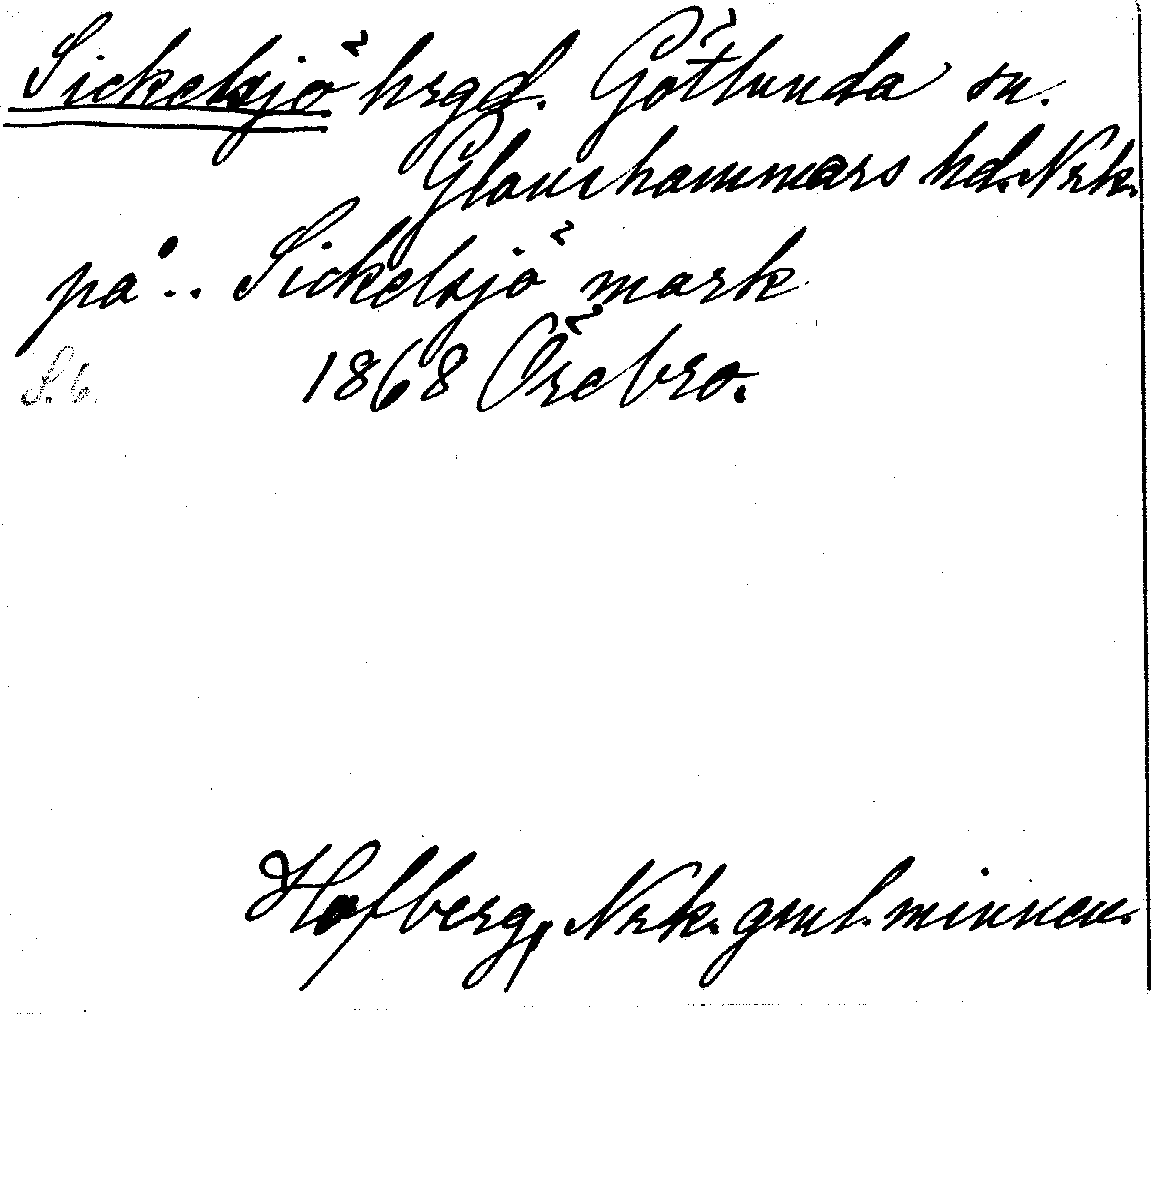 Sickelsjö hrgd. Götlunda sn.
Glanshammars hd. Nrk.
på .. Sickelsjö mark
S. 6. 1868 Örebro.
Hofberg, Nrk. gml. minnen.